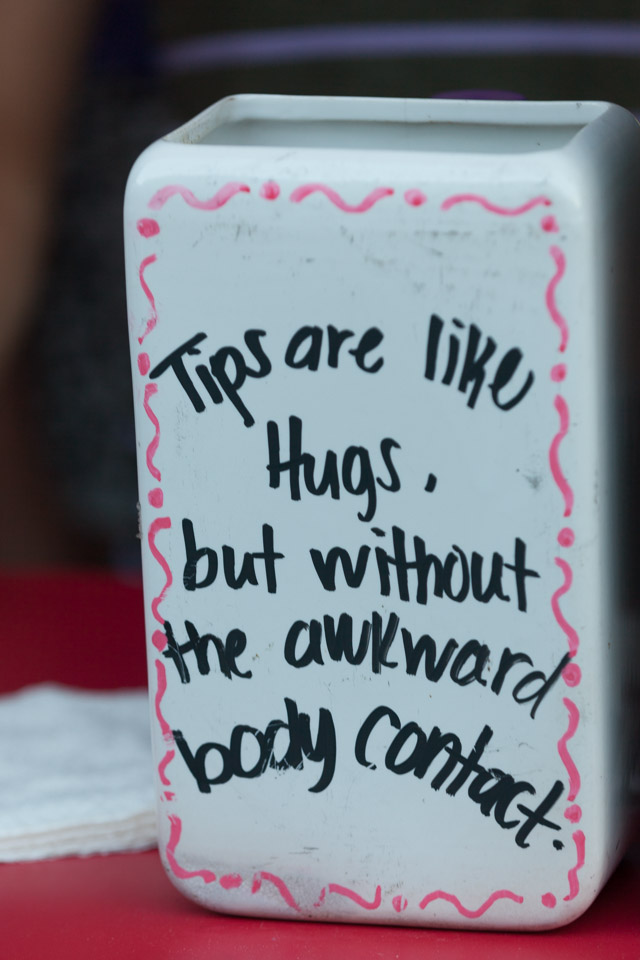 Tips are like
Hugs,
but without
the awkward
body contact.